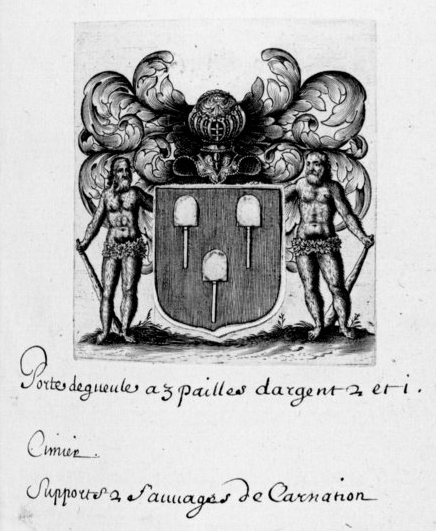 Porte de gueule a 3 pailles dargent 2 et i.
Cimier.
Supports 2 Sauuages de Carnation